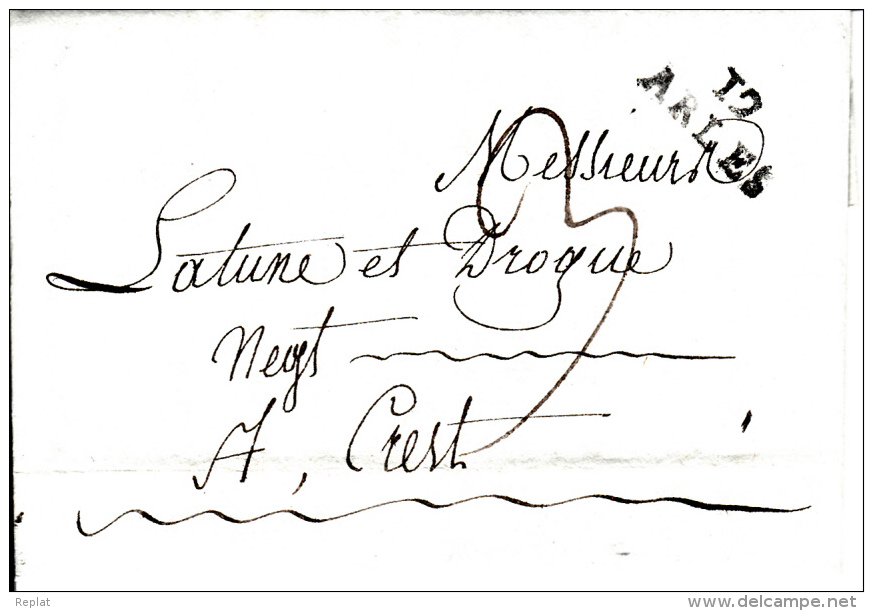 12
ARLES
Messieurs
Latune et Drogue
Negt
A, Crest
3
Replat
www.delcampe.net